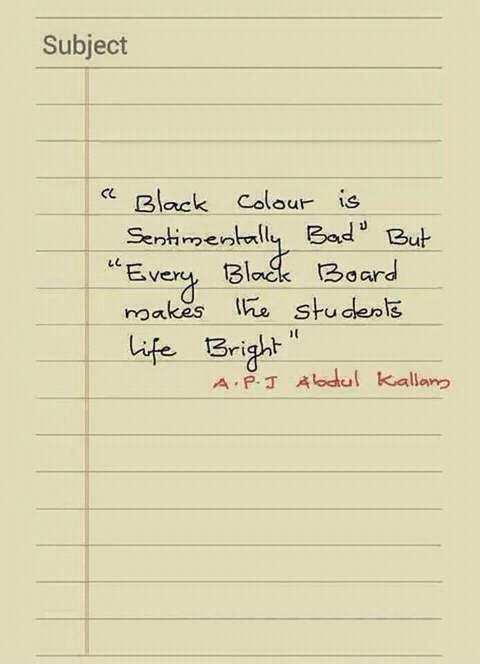 Subject
“ Black Colour is
Sentimentally Bad" But
“Every Black Board
makes the students
life Bright"
A.P.J Abdul Kallam